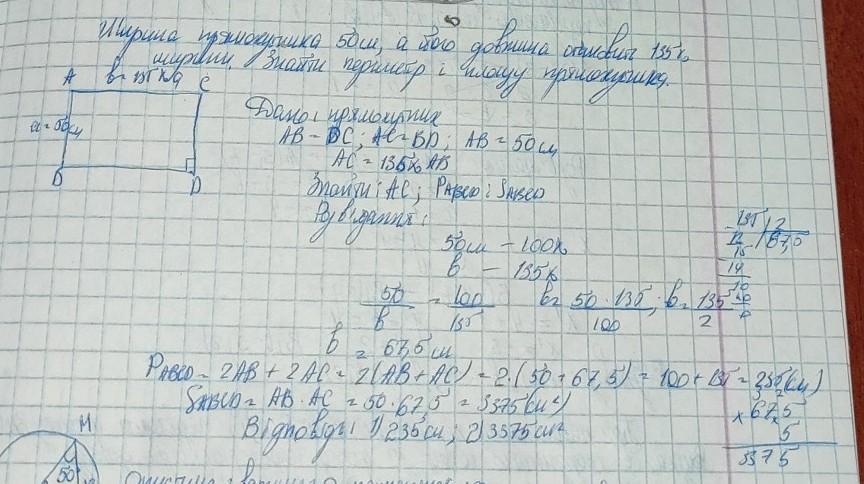 Ширина прямокутника 50см, а його довжина становить 135%
ширини. Знайти периметр і площу прямокутника.
A b = 135% a C
a = 50см
B D
Дано: прямокутник
AB = DC; AC = BD; AB = 50см
AC = 135% AB
Знайти: AC; PABCD; SABCD
Розв'язання:
50см – 100%
b – 135%
50/b = 100/135 b = 50 · 135/100; b = 135/2
b = 67,5см
PABCD = 2AB + 2AC = 2(AB + AC) = 2·(50 + 67,5) = 100 + 135 = 235(см)
SABCD = AB · AC = 50 · 67,5 = 3375(см²)
Відповідь: 1) 235см; 2) 3375см²
135 | 2
12 | 67,5
15
14
10
10
0
× 67,5
5
3375
M
50°